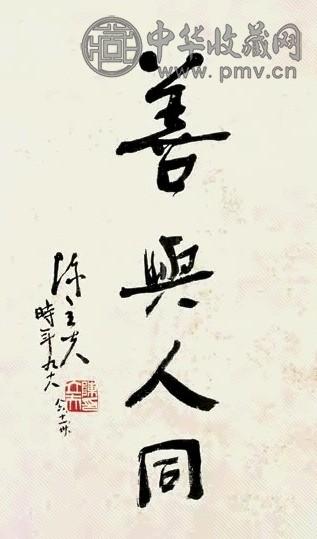 中华收藏网
www.pmv.cn
善與人同
陳立夫
時年九十八